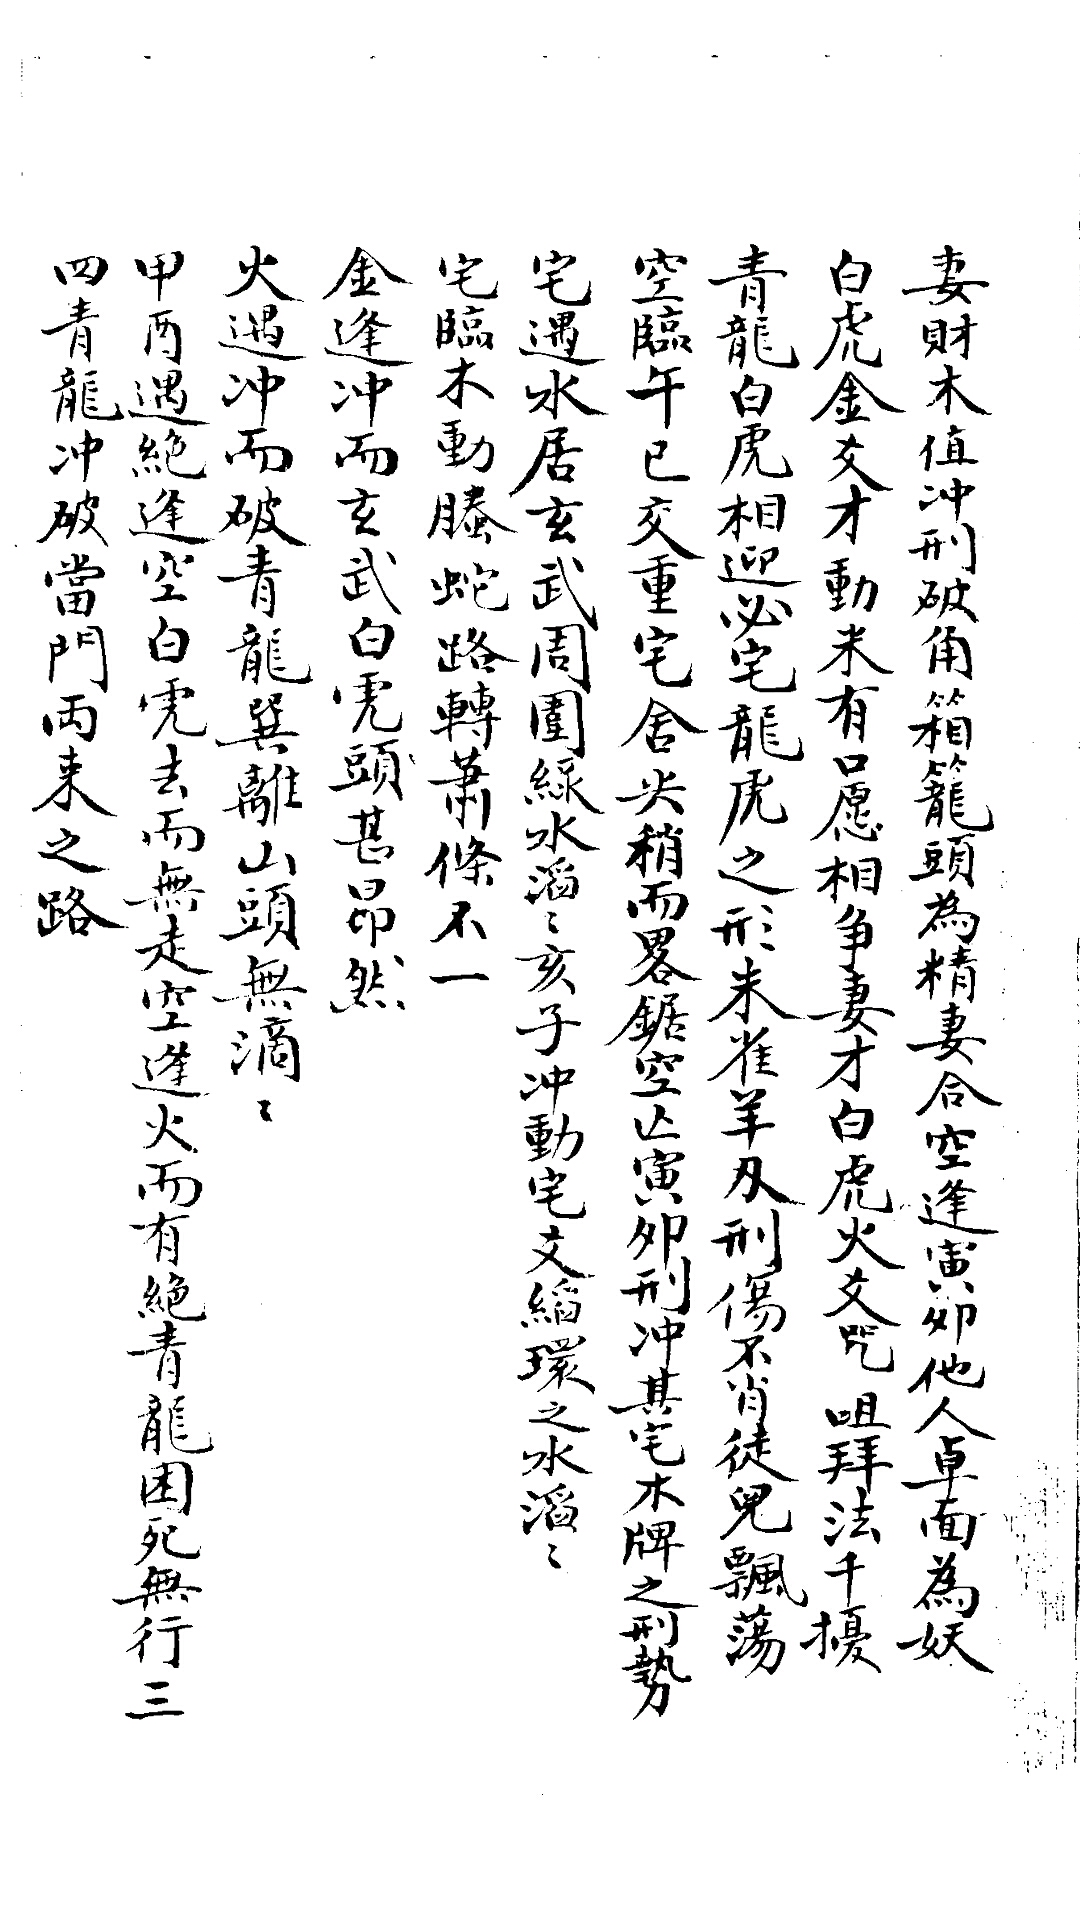 妻財木值冲刑破角箱籠頭為精妻合空逢寅夘他人卓面為妖
白虎金爻才動未有口愿相争妻才白虎火爻咒咀拜法千擾
青龍白虎相迎必宅龍虎之形朱雀羊刄刑傷不肖徒兒飄蕩
空臨午巳交重宅舍尖稍而畧鋸空亡寅夘刑冲其宅木牌之刑勢
宅遇水居玄武周圍綠水滔〻亥子冲動宅爻縚環之水滔〻
宅臨木動螣蛇路轉蕭條不一
金逢冲而玄武白虎頭甚昂然
火遇冲而破青龍巽離山頭無滴〻
甲酉遇絶逢空白虎去而無走空逢火而有絶青龍困死無行三
四青龍冲破當門两来之路